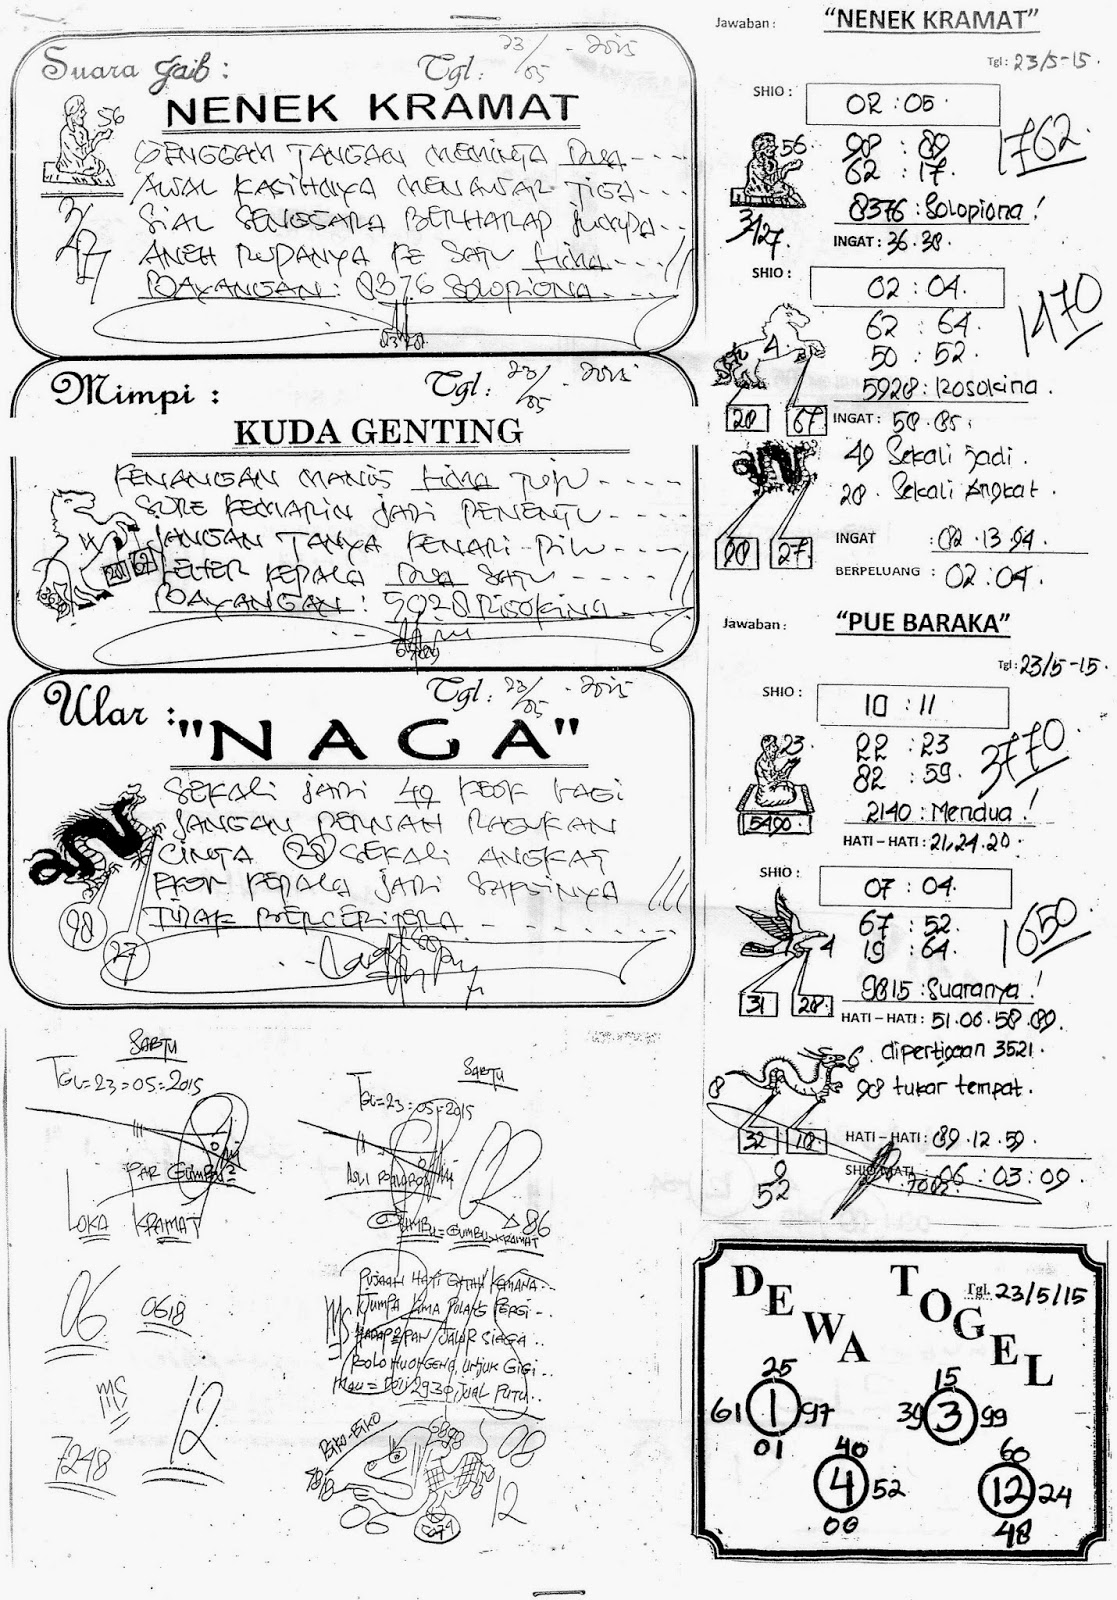 Suara Gaib :
Tgl : 23/05 - 2015
NENEK KRAMAT
56
GENGGAM TANGAN MEMINTA DUA ----
AWAL KASIHNYA MENAWAR TIGA ---
SIAL SENGSARA BERHARAP JUMPA --
ANEH RUPANYA KE SATU LIMA ---
BAYANGAN : 8376 SOLOPIONA
3/27
Mimpi :
Tgl : 23/05 - 2015
KUDA GENTING
KENANGAN MANIS LIMA TUJU
SORE KEMARIN JADI PENENTU
JANGAN TANYA KENARI PILU
LETTER KEPALA DUA SATU
BAYANGAN : 5928
20 67
Ular :
Tgl : 23/05 - 2015
"NAGA"
SEKALI JADI 49 LAGI
JANGAN PERNAH RAGUKAN
CINTA 28 SEKALI ANGKAT
EKOR KEPALA JADI
TIDAK BERCERITERA
98
27
Jawaban : "NENEK KRAMAT"
Tgl : 23/5-15.
SHIO : 02 : 05.
56
98 : 89
62 : 17.
1762
8376 : Solopiona !
3/27.
INGAT : 36.38.
SHIO : 02 : 04.
62 : 64.
50 : 52.
1470
4
5928 : Rosokina
20 67
INGAT : 58.85.
49 Sekali jadi.
28. Sekali Angkat.
98 27
INGAT : 82.13.94.
BERPELUANG : 02 : 04.
Jawaban : "PUE BARAKA"
Tgl : 23/5-15.
SHIO : 10 : 11
23
22 : 23
82 : 59.
3770
5490
2140 : Mendua !
HATI – HATI : 21.24.20
SHIO : 07 : 04.
67 : 52.
19 : 64.
1650
4
9815 : Suaranya !
31 28
HATI – HATI : 51.06.58.89.
6. dipertigaan 3521.
8
98 tukar tempat.
32 18
HATI – HATI : 89.12.59.
SHIO MATI : 06 : 03 : 09.
52
SABTU
TGL=23=05=2015
PAR GUMBU
LOKA KRAMAT
06
0618
MS
7248
12
SABTU
TGL=23=05=2015
86
GUMBU=GUMBU KRAMAT
PUJAAN HATI ENTAH KEMANA..
JUMPA LIMA PULANG PERGI..
MS
BIKO-BIKO
08
06
12
DEWA TOGEL
Tgl. 23/5/15
25
61 1 97
01
15
39 3 99
40
4 52
00
60
12 24
48